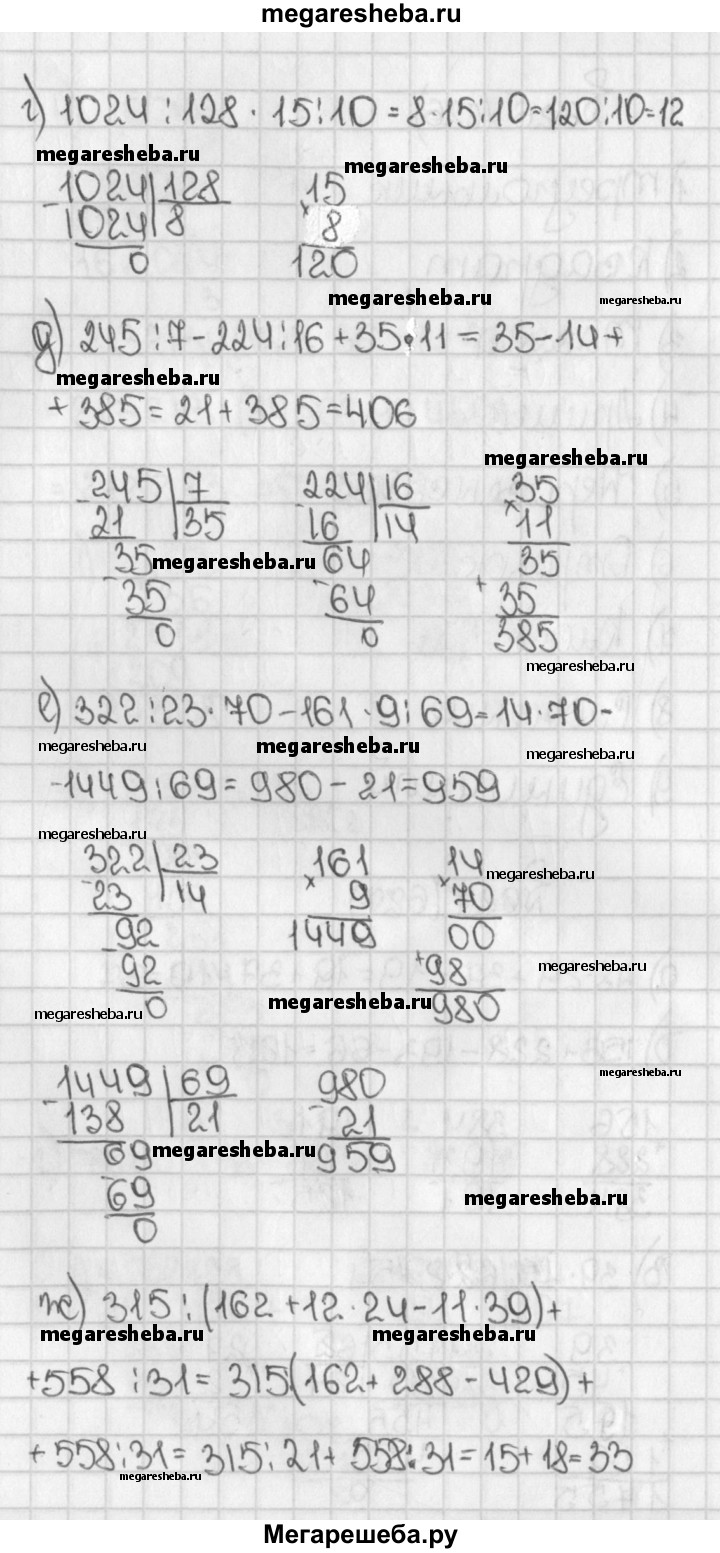 megaresheba.ru
г) 1024 : 128 · 15 : 10 = 8 · 15 : 10 = 120 : 10 = 12
megaresheba.ru megaresheba.ru
- 1024 | 128 15
1024 | 8 × 8
0 120
megaresheba.ru megaresheba.ru
д) 245 : 7 - 224 : 16 + 35 · 11 = 35 - 14 +
megaresheba.ru
+ 385 = 21 + 385 = 406
megaresheba.ru
- 245 | 7 - 224 | 16 × 35
21 | 35 16 | 14 11
- 35 megaresheba.ru - 64 35
35 64 + 35
0 0 385
megaresheba.ru
е) 322 : 23 · 70 - 161 · 9 : 69 = 14 · 70 -
megaresheba.ru megaresheba.ru megaresheba.ru
- 1449 : 69 = 980 - 21 = 959
megaresheba.ru
- 322 | 23 × 161 × 14 megaresheba.ru
23 | 14 9 70
- 92 1449 00
92 + 98 megaresheba.ru
0 megaresheba.ru 980
megaresheba.ru
- 1449 | 69 - 980 megaresheba.ru
138 | 21 21
- 69 megaresheba.ru 959
69 megaresheba.ru
0
ж) 315 : (162 + 12 · 24 - 11 · 39) +
megaresheba.ru megaresheba.ru
+ 558 : 31 = 315(162 + 288 - 429) +
+ 558 : 31 = 315 : 21 + 558 : 31 = 15 + 18 = 33
megaresheba.ru
Мегарешеба.ру